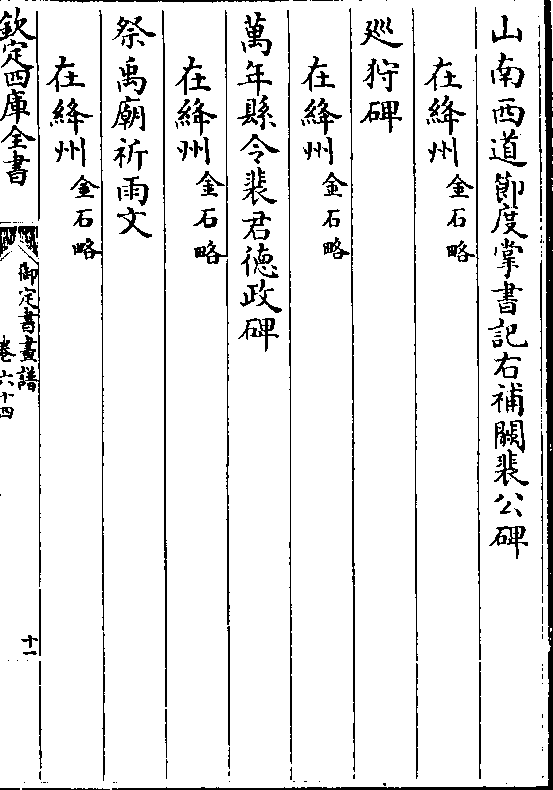 山南西道節度掌書記右補闕裴公碑
在絳州金石略
廵狩碑
在絳州金石略
萬年縣令裴君德政碑
在絳州金石略
祭禹廟祈雨文
在絳州金石略
欽定四庫全書
御定書畫譜
卷六十四
十一